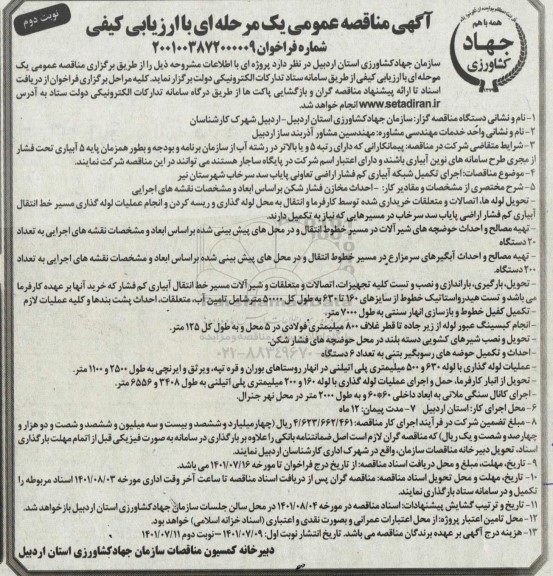 نوبت دوم
آگهی مناقصه عمومی یک مرحله ای با ارزیابی کیفی
شماره فراخوان ۲۰۰۱۰۰۳۸۷۲۰۰۰۰۰۹
همه با هم
جهاد
کشاورزی
سازمان جهادکشاورزی استان اردبیل در نظر دارد پروژه ای با اطلاعات مشروحه ذیل را از طریق برگزاری مناقصه عمومی یک
مرحله ای با ارزیابی کیفی از طریق سامانه ستاد تدارکات الکترونیکی دولت برگزار نماید. کلیه مراحل برگزاری فراخوان از دریافت
اسناد تا ارائه پیشنهاد مناقصه گران و بازگشایی پاکت ها از طریق درگاه سامانه تدارکات الکترونیکی دولت ستاد به آدرس
www.setadiran.ir انجام خواهد شد.
۱- نام و نشانی دستگاه مناقصه گزار: سازمان جهادکشاورزی استان اردبیل - اردبیل شهرک کارشناسان
۲- نام و نشانی واحد خدمات مهندسی مشاوره: مهندسین مشاور آذربند ساز اردبیل
۳- شرایط متقاضی شرکت در مناقصه: پیمانکارانی که دارای رتبه ۵ و یا بالاتر در رشته آب از سازمان برنامه و بودجه و بطور همزمان پایه ۵ آبیاری تحت فشار
از مجری طرح سامانه های نوین آبیاری باشند و دارای اعتبار اسم شرکت در پایگاه ساجار هستند می توانند در این مناقصه شرکت نمایند.
۴- موضوع مناقصات: اجرای تکمیل شبکه آبیاری کم فشار اراضی تعاونی پایاب سد سرخاب شهرستان نیر
۵- شرح مختصری از مشخصات و مقادیر کار: - احداث مخازن فشار شکن براساس ابعاد و مشخصات نقشه های اجرایی
- تحویل لوله ها، اتصالات و متعلقات خریداری شده توسط کارفرما و انتقال به محل لوله گذاری و ریسه کردن و انجام عملیات لوله گذاری مسیر خط انتقال
آبیاری کم فشار اراضی پایاب سد سرخاب در مسیرهایی که نیاز به تکمیل دارند.
- تهیه مصالح و احداث حوضچه های شیر آلات در مسیر خطوط انتقال و در محل های پیش بینی شده براساس ابعاد و مشخصات نقشه های اجرایی به تعداد
۲۰ دستگاه
- تهیه مصالح و احداث آبگیرهای سرمزارع در مسیر خطوط انتقال و در محل های پیش بینی شده براساس ابعاد و مشخصات نقشه های اجرایی به تعداد
۲۰۰ دستگاه.
- تحویل، بارگیری، باراندازی و نصب و تست کلیه تجهیزات، اتصالات و متعلقات و شیر آلات مسیر خط انتقال آبیاری کم فشار که خرید آنها بر عهده کارفرما
می باشد و تست هیدرواستاتیک خطوط از سایزهای ۱۶۰ تا ۶۳۰ به طول کل ۵۰۰۰۰ متر شامل تامین آب، متعلقات، احداث پشت بندها و کلیه عملیات لازم
- تکمیل کفیل خطوط و بازسازی انهار سنتی به طول ۷۰۰۰ متر.
- انجام کیسینگ عبور لوله از زیر جاده تا قطر غلاف ۸۰۰ میلیمتری فولادی در ۵ محل و به طول کل ۱۲۵ متر.
- تحویل و نصب شیرهای کشویی دسته بلند در محل حوضچه های فشار شکن.
- احداث و تکمیل حوضه های رسوبگیر بتنی به تعداد ۶ دستگاه
- عملیات لوله گذاری با لوله ۶۳۰ و ۵۰۰ میلیمتری پلی اتیلنی در انهار روستاهای بوران و قره تپه، ویرثق و ایرنچی به طول ۲۵۰۰ و ۱۱۰۰ متر.
- تحویل از انبار کارفرما، حمل و اجرای عملیات لوله گذاری با لوله ۱۶۰ و ۲۰۰ میلیمتری پلی اتیلنی به طول ۳۴۰۸ و ۶۵۵۶ متر.
- اجرای کانال سنگی ملاتی به ابعاد داخلی ۶۰*۶۰ و به طول ۲۰۰۰ متر در محل نهر جنرال.
۶- محل اجرای کار: استان اردبیل ۷- مدت پیمان: ۱۲ ماه
۸- مبلغ تضمین شرکت در فرآیند اجرای کار مناقصه: ۴/۶۲۳/۶۶۲/۴۶۱ ریال (چهار میلیارد و ششصد و بیست و سه میلیون و ششصد و شصت و دو هزار و
چهارصد و شصت و یک ریال) که مناقصه گران لازم است اصل ضمانتنامه بانک را علاوه بر بارگذاری در سامانه به صورت فیزیکی قبل از اتمام مهلت بارگذاری
اسناد، تحویل دبیرخانه مناقصات سازمان، واقع در شهرک اداری کارشناسان اردبیل نمایند.
۹- تاریخ، مهلت، مبلغ و محل دریافت اسناد مناقصه: از تاریخ درج فراخوان تا مورخه ۱۴۰۱/۰۷/۱۶ می باشد.
۱۰- تاریخ، مهلت و محل تحویل اسناد مناقصه: مناقصه گران پس از دریافت اسناد مناقصه تا ساعت آخر وقت اداری مورخه ۱۴۰۱/۰۸/۰۳ اسناد مربوطه را
تکمیل و در سامانه ستاد بارگذاری نمایند.
۱۱- تاریخ و ترتیب گشایش پیشنهادات: اسناد مناقصه در مورخه ۱۴۰۱/۰۸/۰۴ در محل سالن جلسات سازمان جهادکشاورزی استان اردبیل بازخواهد شد.
۱۲- محل تامین اعتبار پروژه: از محل اعتبارات عمرانی و بصورت نقدی و اعتباری (اسناد خزانه اسلامی) خواهد بود.
۱۳- هزینه درج آگهی بر عهده برندگان مناقصه می باشد. تاریخ انتشار نوبت اول: ۱۴۰۱/۰۷/۰۹ - نوبت دوم ۱۴۰۱/۰۷/۱۱
دبیرخانه کمسیون مناقصات سازمان جهادکشاورزی استان اردبیل